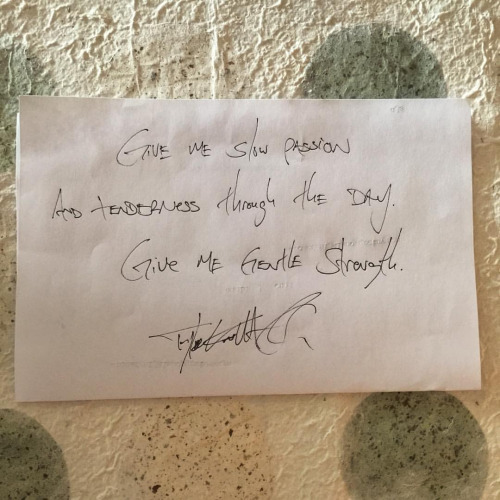 Give me slow passion
And tenderness through the day.
Give me Gentle Strength.